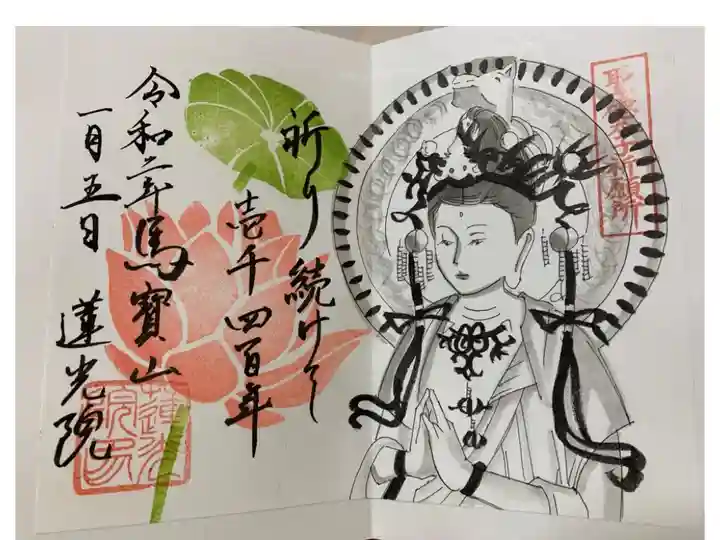 祈り続けて
壱千四百年
令和二年馬寳山
一月五日 蓮光院